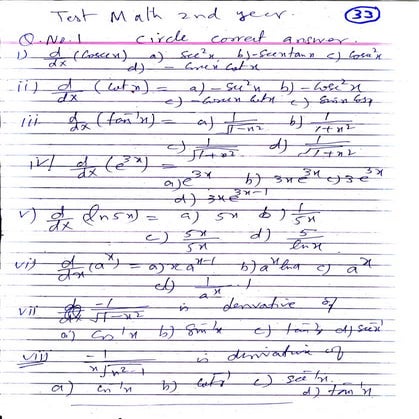 Test Math 2nd year. 33
Q.No.1 Circle correct answer.
i) d/dx (Cosecx) a) Sec²x b) -Secxtanx c) Cosec²x
d) - Cosecx Cot x
ii) d/dx (Cot x) = a) -Sec²x b) -Cosec²x
c) -Cosecx Cotx c) Sinx Cosx
iii d/dx (tan⁻¹x) = a) 1/√(1-x²) b) 1/(1+x²)
c) 1/√(1+x²) d) 1/√(1+x²)
iv/ d/dx (e^3x) =
a) e^3x b) 3xe^3x c) 3e^3x
d) 3xe^(3x-1)
v) d/dx (ln5x) = a) 5x b) 1/5x
c) 5x/5x d) 5/lnx
vi) d/dx (a^x) = a) x a^(x-1) b) a^x lna c) a^x
d) 1/a^x
vii -1/√(1-x²) is derivative of
a) Cos⁻¹x b) Sin⁻¹x c) tan⁻¹x d) Sec⁻¹x
viii -1/(x√(x²-1)) is derivative of
a) Cos⁻¹x b) Cot⁻¹x c) Sec⁻¹x
d) tan⁻¹x